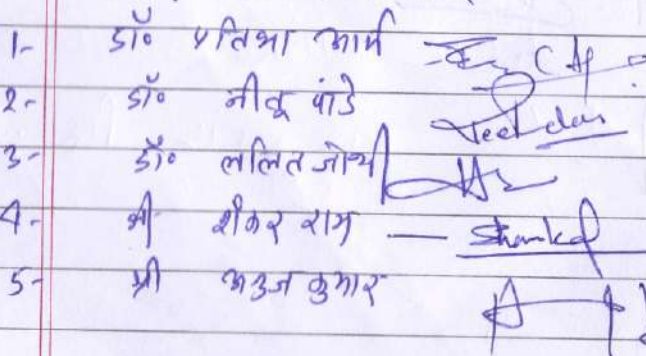 1- डॉ० प्रतिभा आर्य
2- डॉ० नीतू पांडे
3- डॉ० ललित जोशी
4- श्री शंकर राम — Shankar
5- श्री अनुज कुमार